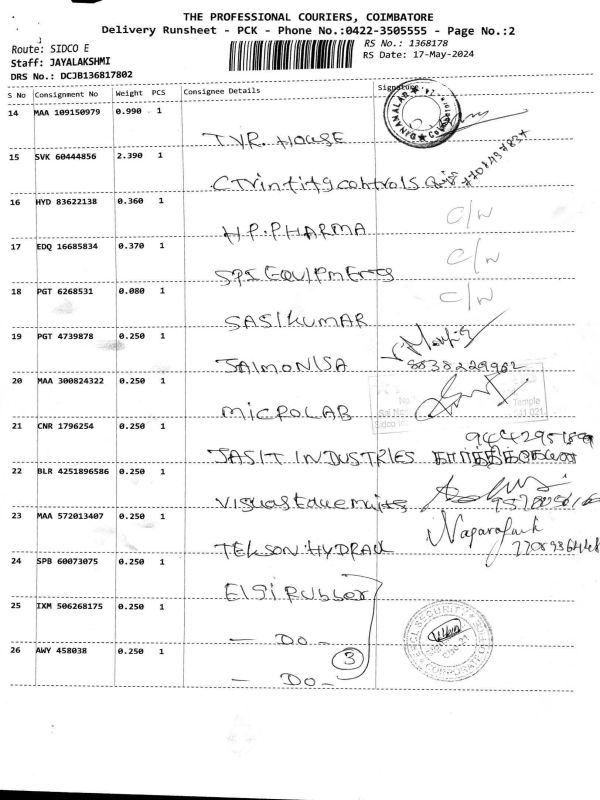 THE PROFESSIONAL COURIERS, COIMBATORE
Delivery Runsheet - PCK - Phone No.:0422-3505555 - Page No.:2
Route: SIDCO E
RS No.: 1368178
Staff: JAYALAKSHMI
RS Date: 17-May-2024
DRS No.: DCJB136817802
S No Consignment No Weight PCS Consignee Details Signature
14 MAA 109150979 0.990 1
DINAMALAR
T.V.R. HOUSE
15 SVK 60444856 2.390 1
16 HYD 83622138 0.360 1
C/W
H.P.PHARMA
17 EDQ 16685834 0.370 1
C/W
SPS EQUIPMENTS
18 PGT 6268531 0.080 1
C/W
SASIKUMAR
19 PGT 4739878 0.250 1
8838229962
20 MAA 300824322 0.250 1
Temple
MICROLAB
21 CNR 1796254 0.250 1
JASIT INDUSTRIES
22 BLR 4251896586 0.250 1
23 MAA 572013407 0.250 1
24 SPB 60073075 0.250 1
Elgi Rubber
25 IXM 506268175 0.250 1
SECURITY
- DO -
CORPORATE
26 AWY 458038 0.250 1
3
- DO -